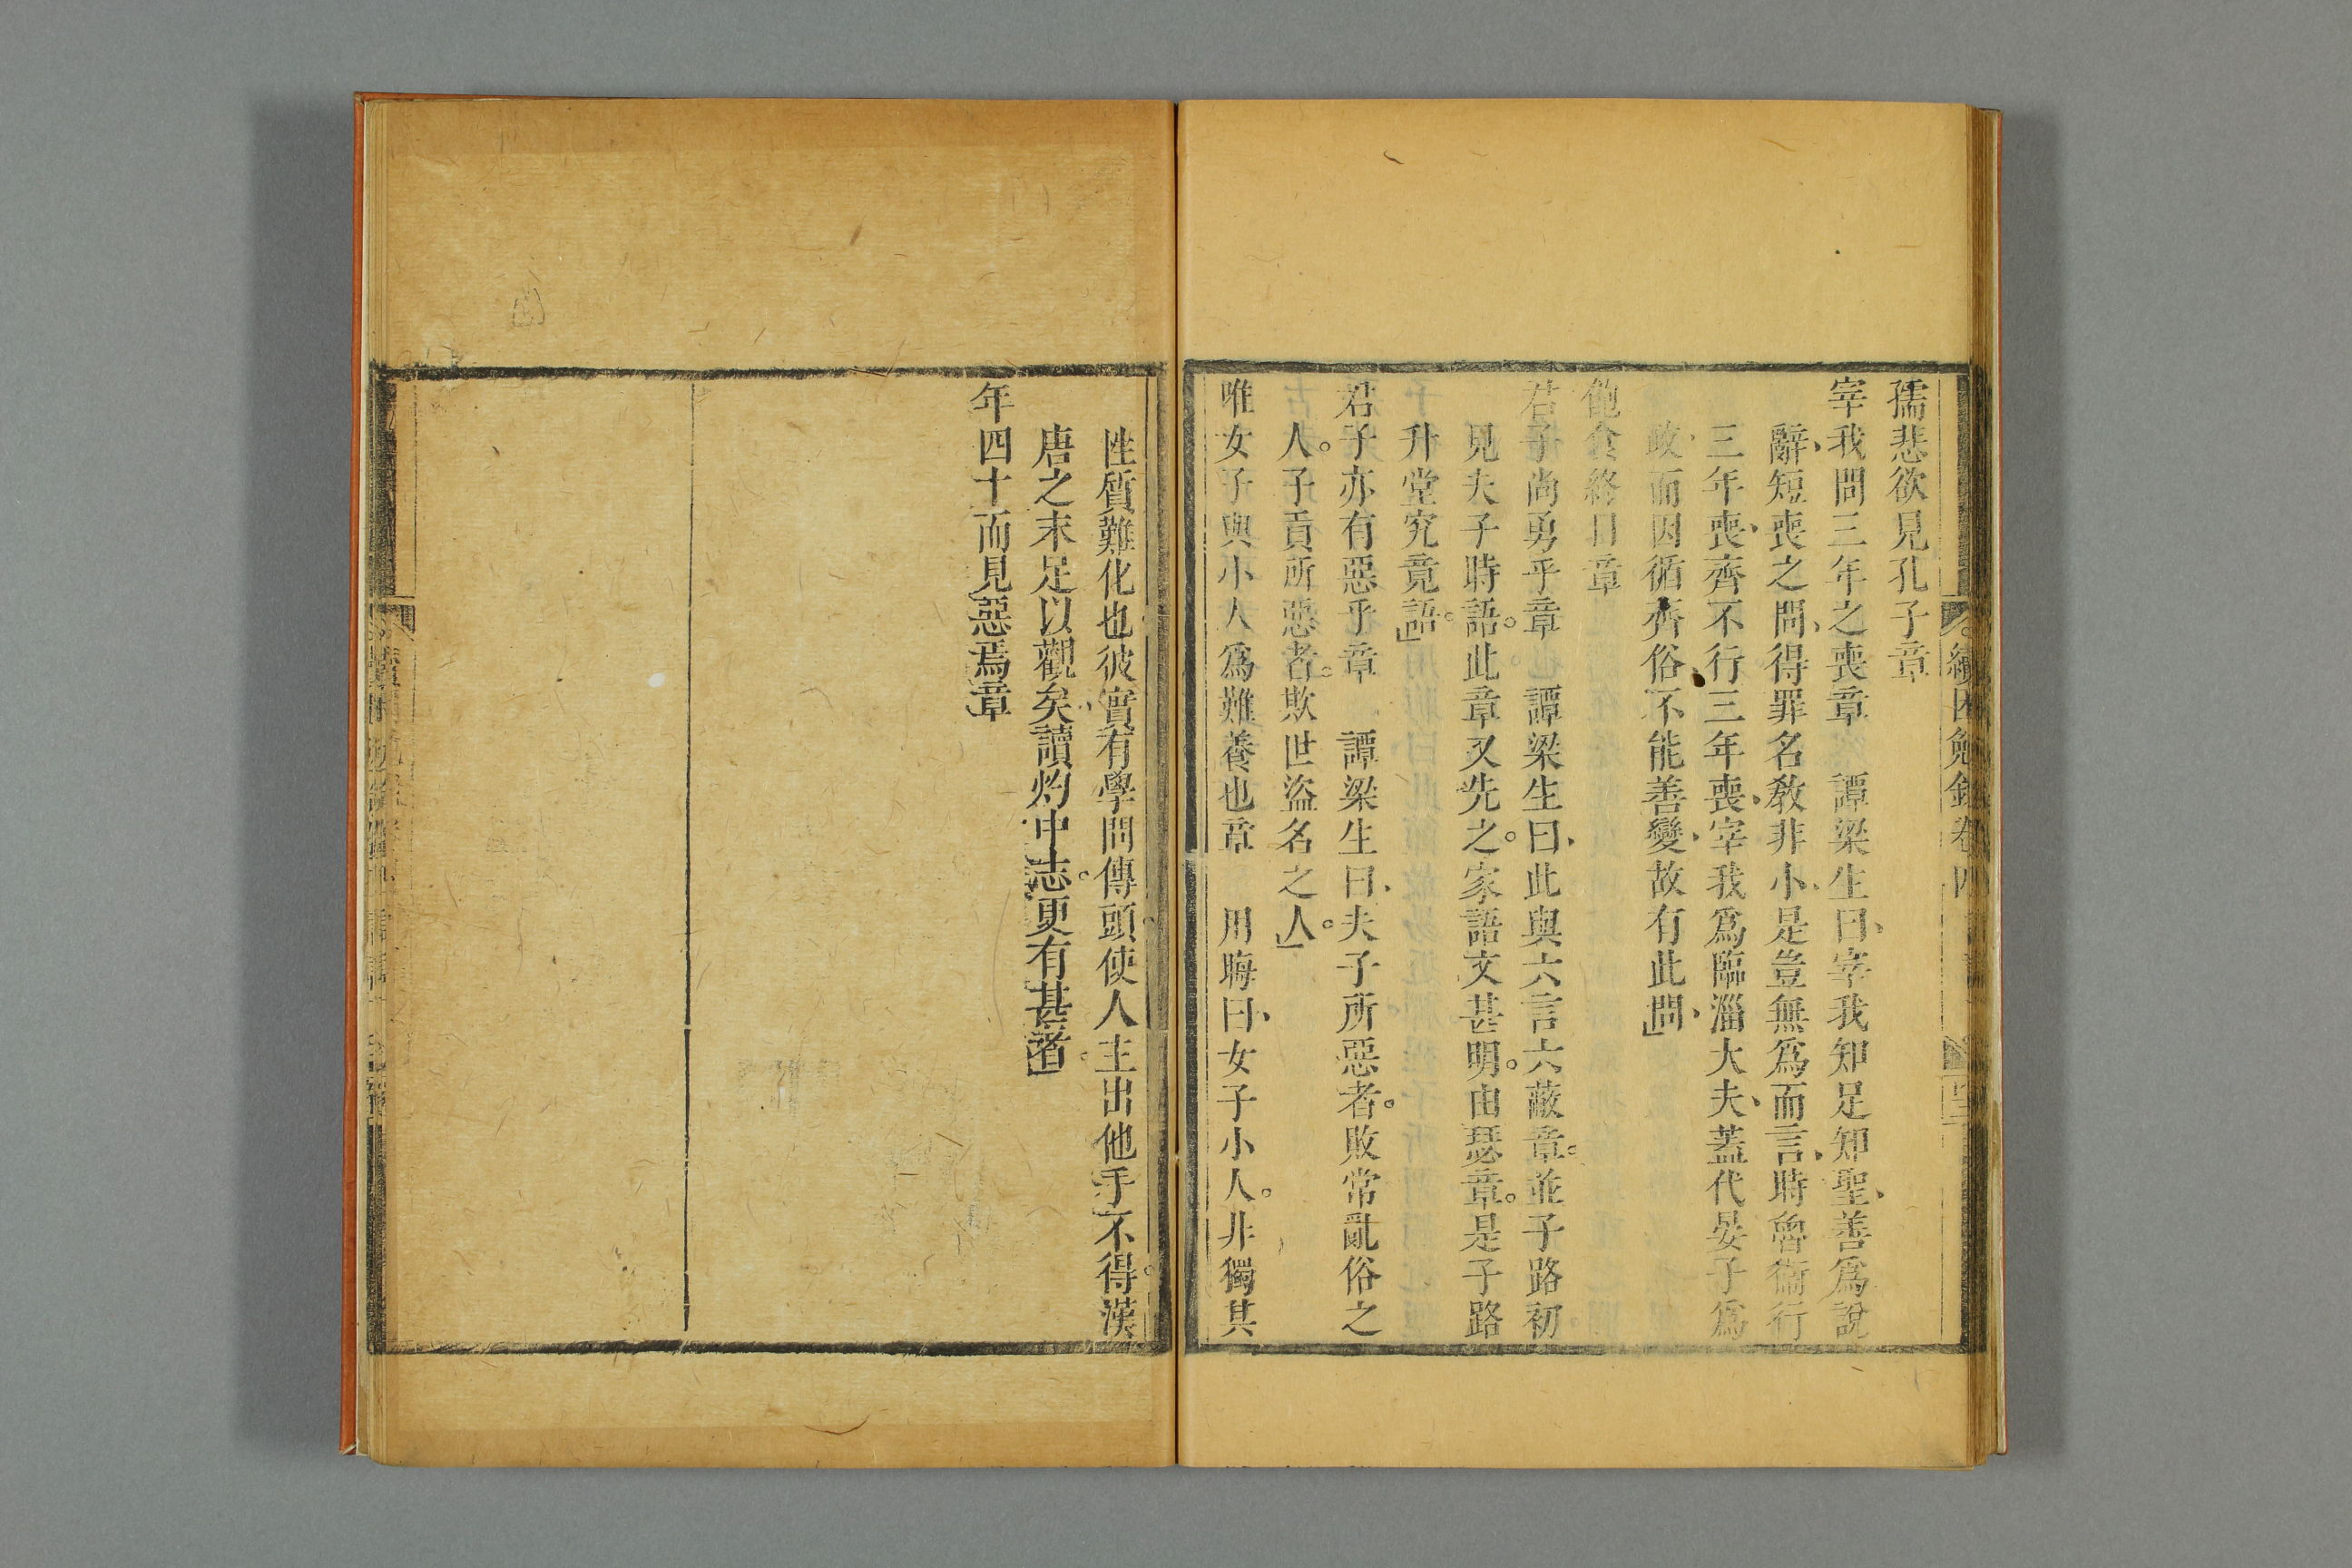 孺悲欲見孔子章
宰我問三年之喪章　譚梁生曰、宰我知足知聖、善爲說
辭、短喪之問、得罪名敎非小、是豈無爲而言、時魯衞行
三年喪、齊不行三年喪、宰我爲臨淄大夫、蓋代晏子爲
政、而因循齊俗、不能善變、故有此問」
飽食終日章
君子尚勇乎章　譚梁生曰、此與六言六蔽章。並子路初
見夫子時語。此章又先之。家語文甚明。由瑟章。是子路
升堂究竟語。」
君子亦有惡乎章　譚梁生曰、夫子所惡者。敗常亂俗之
人。子貢所惡者。欺世盜名之人。」
唯女子與小人爲難養也章　用晦曰、女子小人。非獨其
性質難化也、彼實有學問傳頭。使人主出他手不得。漢
唐之末足以觀矣、讀灼中志。更有甚者。」
年四十而見惡焉章